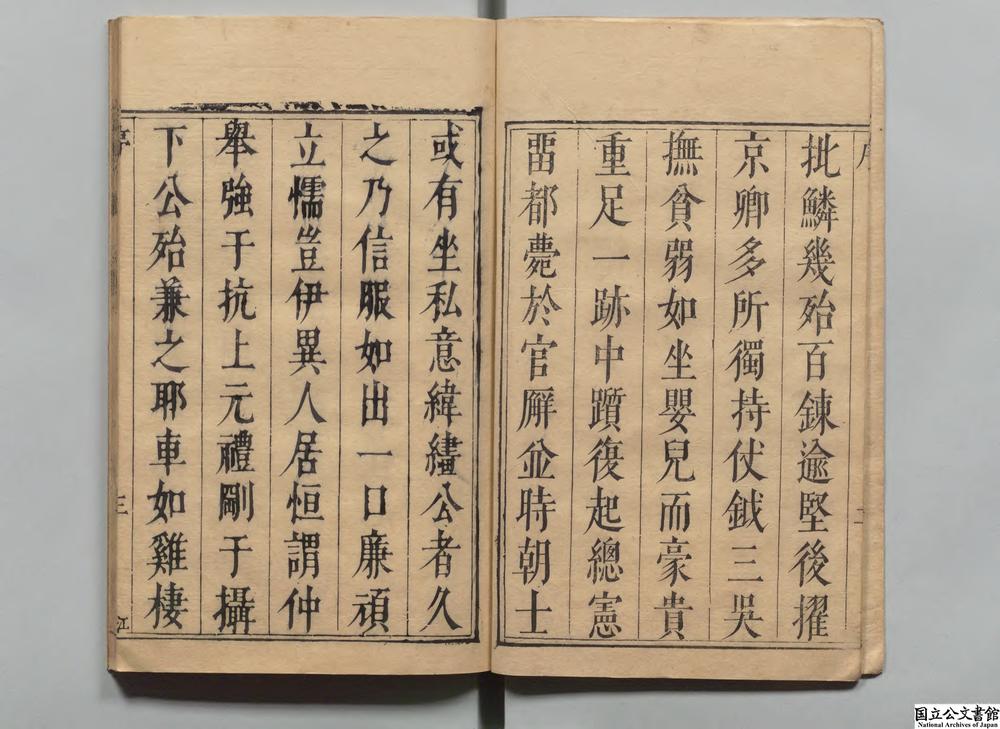 批鱗幾殆百鍊逾堅後擢
京卿多所獨持仗鉞三吳
撫貧弱如坐嬰兒而豪貴
重足一跡中躓復起總憲
畱都薨於官廨並時朝士
或有坐私意緯繣公者久
之乃信服如出一口廉頑
立懦豈伊異人居恒謂仲
舉強于抗上元禮剛于攝
下公殆兼之耶車如雞棲
序
三
江
国立公文書館
National Archives of Japan